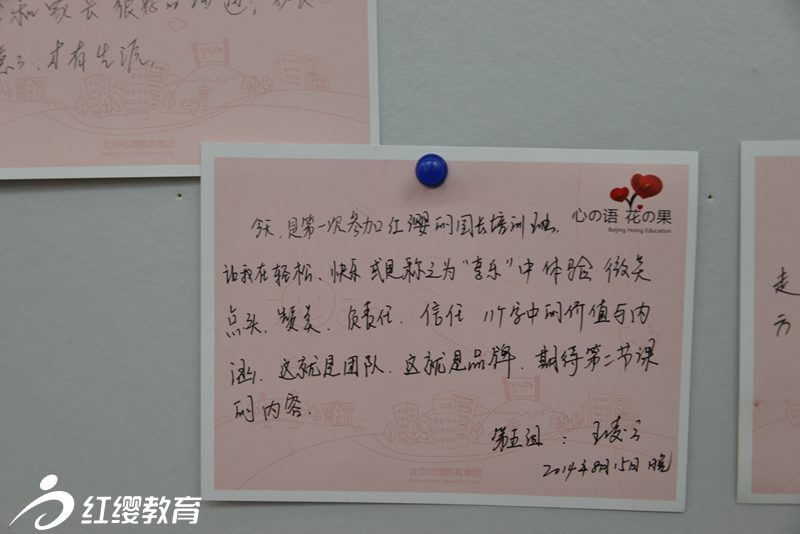 和家长很好的沟通，
才有生源。
北京红缨教育集团
心の语 花の果
Beijing Hoing Education
今天，是第一次参加红缨的园长培训班，
让我在轻松、快乐或是称之为“享乐”中体验 微笑
点头、赞美、负责任、信任 11个字中的价值与内
涵，这就是团队，这就是品牌，期待第二节课
的内容。
第五组：王凌云
2014年8月15日 晚
北京红缨教育集团
Beijing Hoing Education Group
走
方
红缨教育